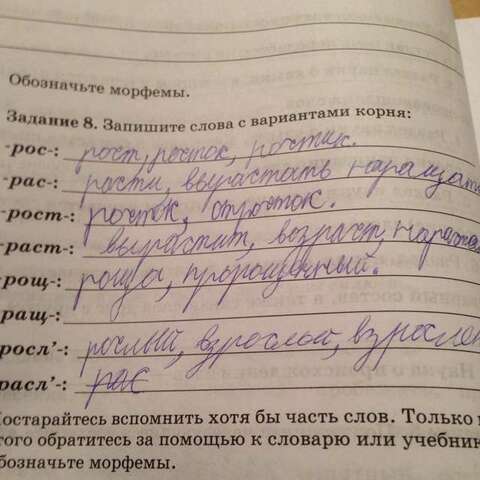 Обозначьте морфемы.
Задание 8. Запишите слова с вариантами корня:
-рос-: рост, росток, ростик.
-рас-: расти, вырастать наращать
-рост-: росток, отросток.
-раст-: вырастит, возраст, нараста
-рощ-: роща, пророщенный.
ращ-:
росл'-: рослый, взрослый, взрослен
расл'-: рас
Постарайтесь вспомнить хотя бы часть слов. Только п
этого обратитесь за помощью к словарю или учебник
бозначьте морфемы.